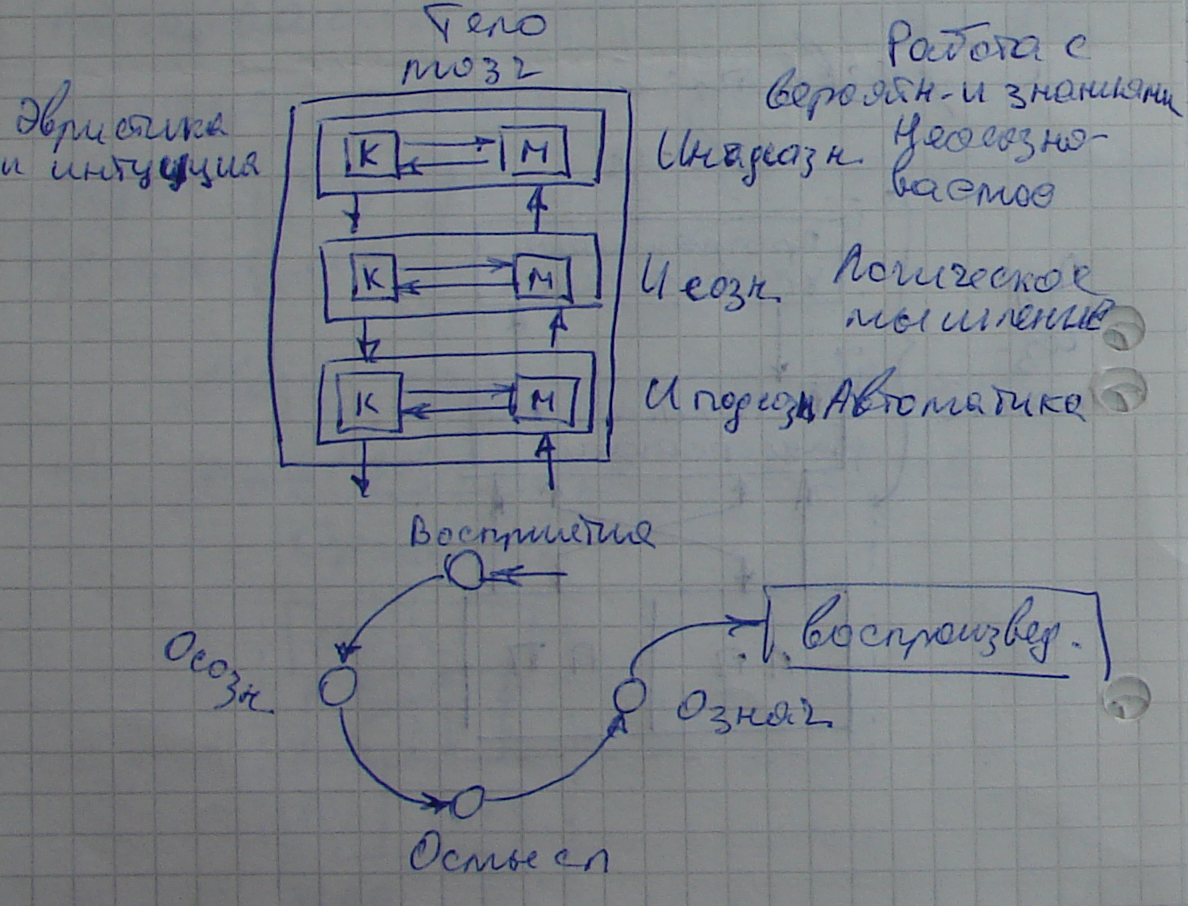 Тело
мозг
Работа с
вероятн-и знаниями
Эвристика
и интуиция
К
М
И надсозн.
Неосозно-
ваемое
К
М
И созн.
Логическое
мышление
К
М
И подсозн
Автоматика
Восприятия
Осозн.
воспроизвед.
Означ.
Осмысл